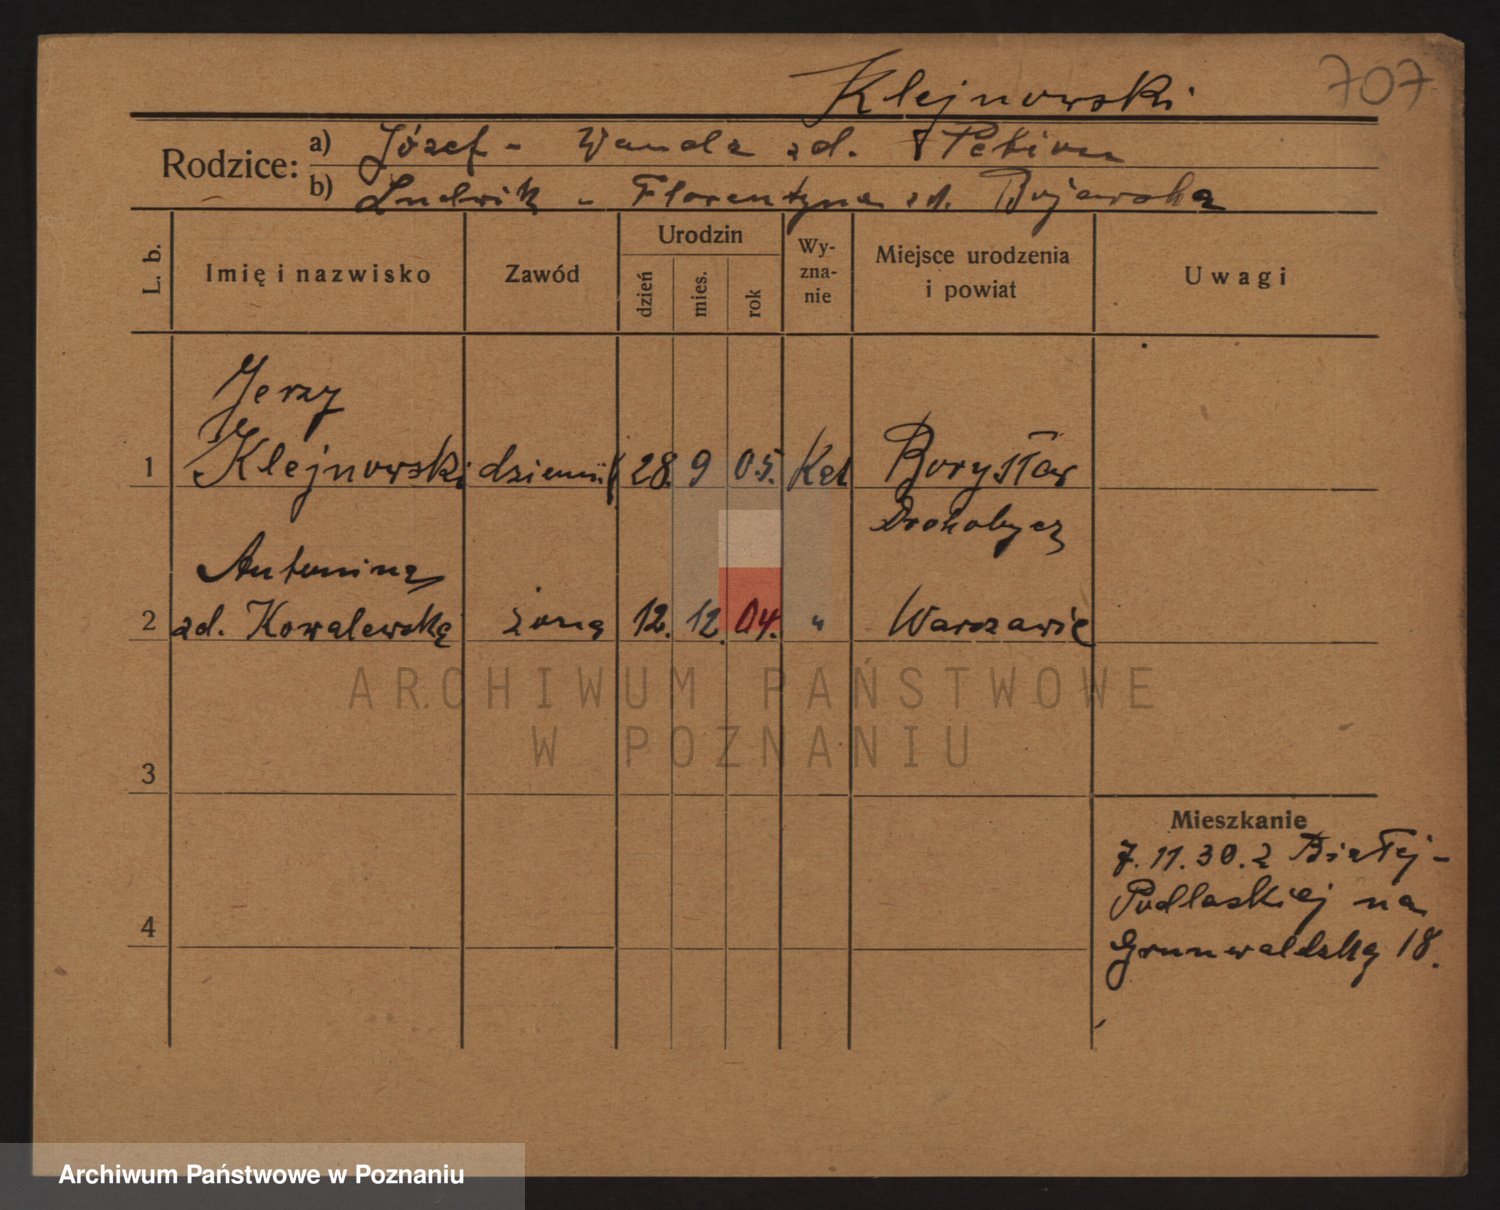 707
Klejnowski
Rodzice: a) Józef - Wanda zd.
b) Ludwik - Florentyna zd. Bojarska
L. b. Imię i nazwisko Zawód Urodzin dzień mies. rok Wy-zna-nie Miejsce urodzenia i powiat Uwagi
Jerzy
1 Klejnowski 28. 9 05. Borysław
Drohobycz
Antonina
2 zd. Kowalewska żona 12. 12. 04. " Warszawie
ARCHIWUM PAŃSTWOWE
W POZNANIU
3
Mieszkanie
7.11.30. z Białej-
Podlaskiej na
4
Grunwaldzką 18.
Archiwum Państwowe w Poznaniu